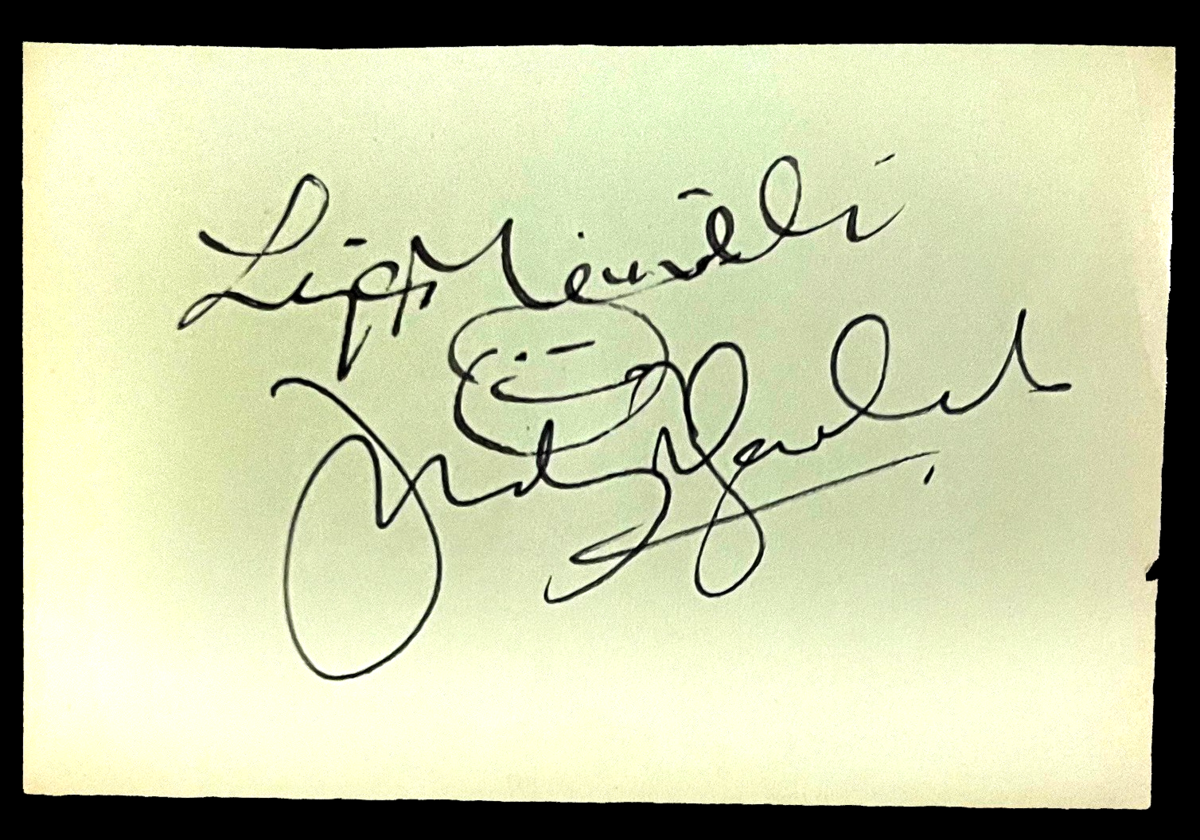 Liza Minnelli
Judy Garland